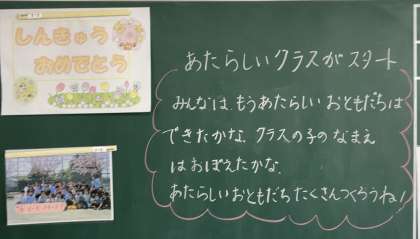 しんきゅう
おめでとう
あたらしいクラスがスタート
みんなは、もうあたらしいおともだちは
できたかな。クラスの子のなまえ
はおぼえたかな。
あたらしいおともだちたくさんつくろうね!